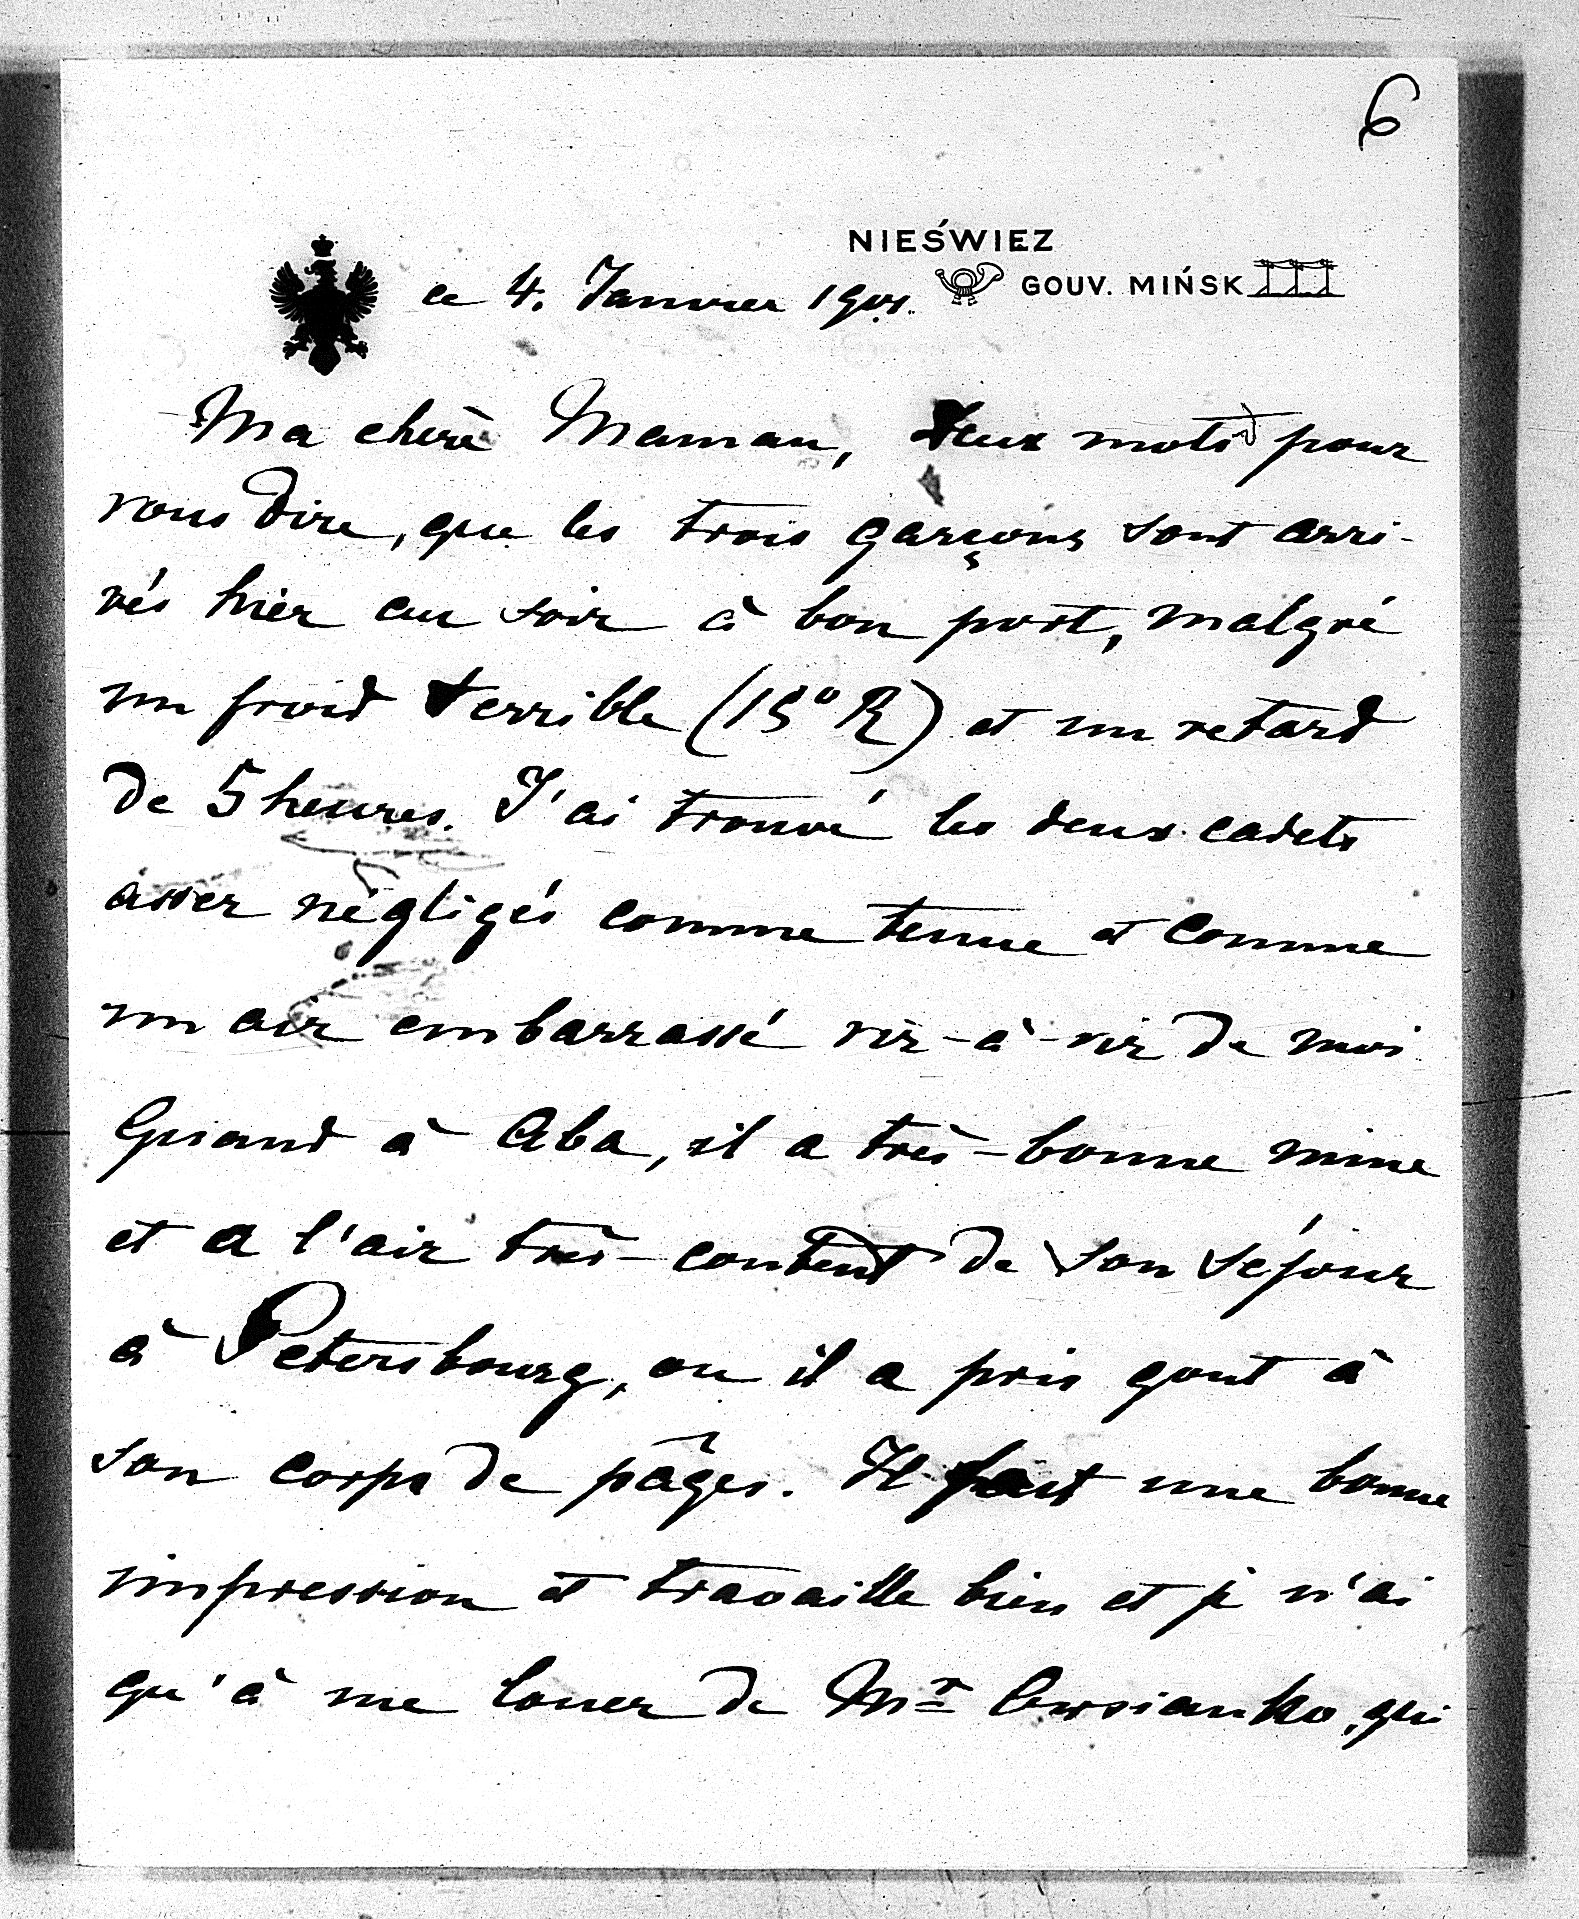 6
NIEŚWIEZ
GOUV. MIŃSK
ce 4. Janvier 1901.
Ma chère Maman, Deux mots pour
vous dire, que les trois garçons sont arri-
vés hier au soir à bon port, malgré
un froid terrible (15° R) et un retard
de 5 heures. J'ai trouvé les deux cadets
assez négligés comme tenue et comme
un air embarrassé vis-à-vis de moi
Quand à Aba, il a très-bonne mine
et a l'air très-content de son séjour
à Petersbourg, ou il a pris gout à
son corps de pâges. Il fait une bonne
impression et travaille bien et je n'ai
qu'à me louer de Mr, qui